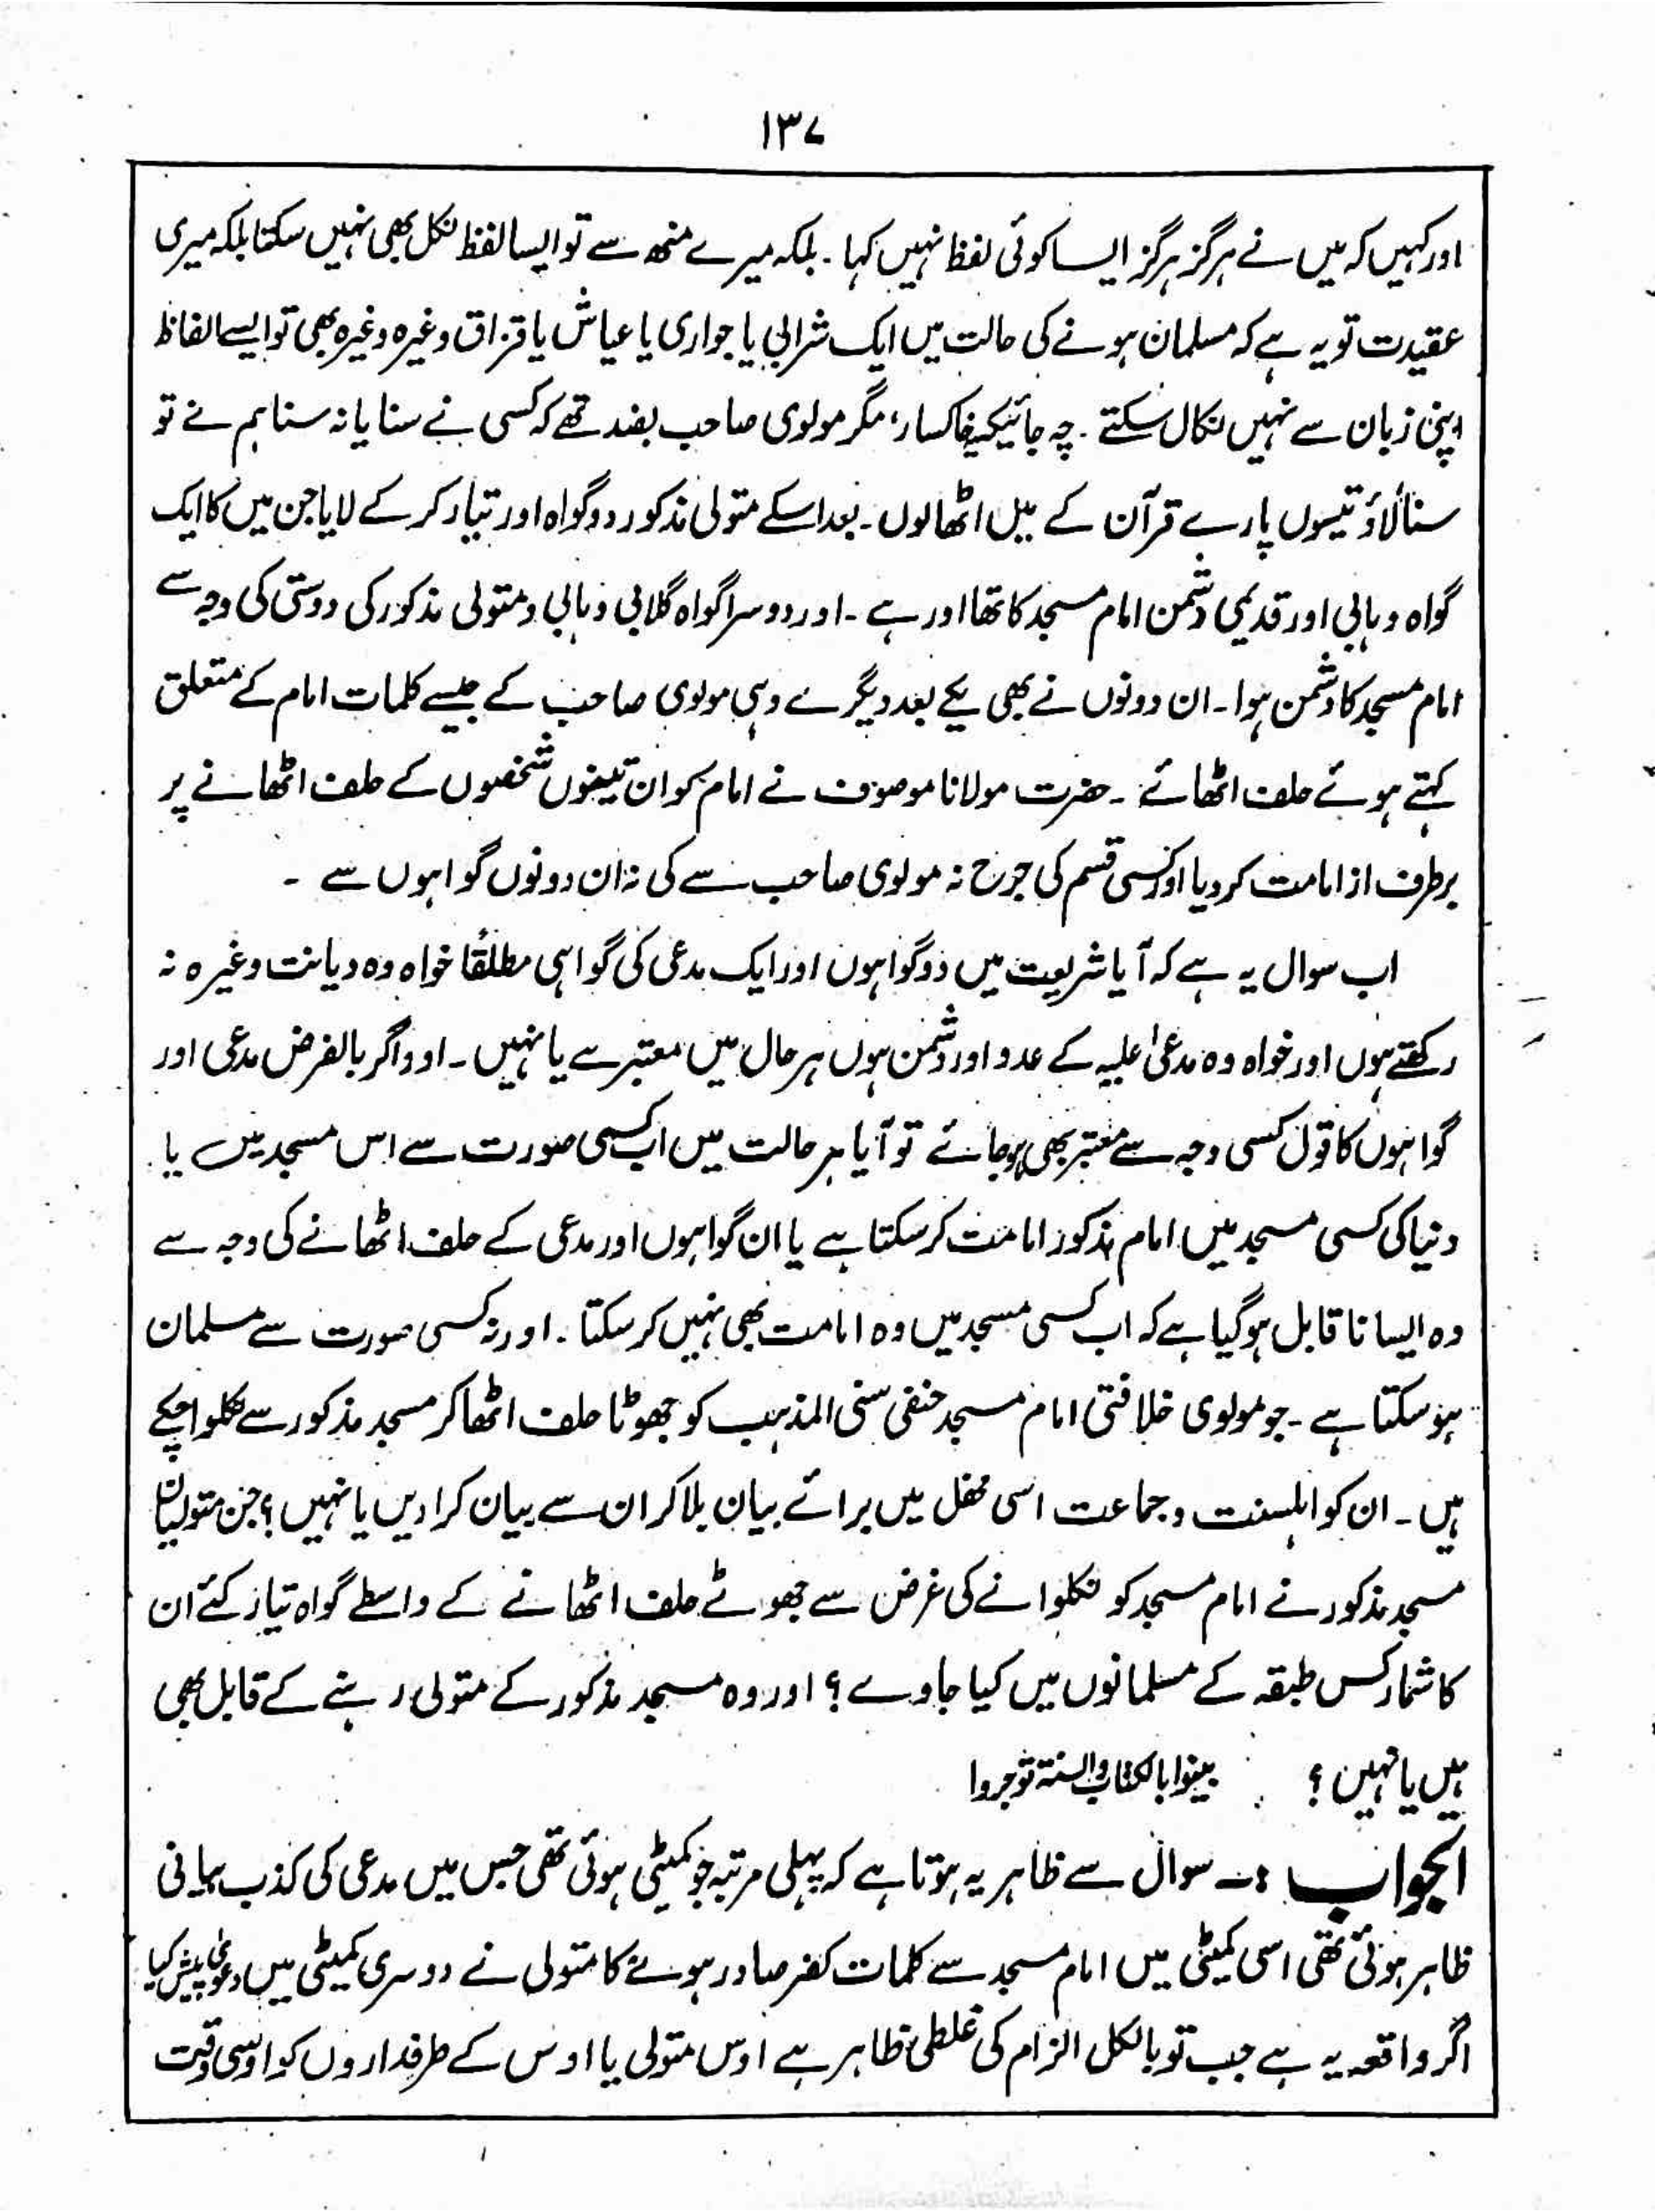 ۱۳۷
اور کہیں کہ میں نے ہرگز ہرگز ایسا کوئی لفظ نہیں کہا ۔ بلکہ میرے منھ سے تو ایسا لفظ نکل بھی نہیں سکتا بلکہ میری
عقیدت تو یہ ہے کہ مسلمان ہونے کی حالت میں ایک شرابی یا جواری یا عیاش یا قزاق وغیرہ وغیرہ بھی تو ایسے الفاظ
اپنی زبان سے نہیں نکال سکتے ۔ چہ جائیکہ خاکسار، مگر مولوی صاحب بضد تھے کہ کسی نے سنا یا نہ سنا ہم نے تو
سنا لاؤ تیسوں پارے قرآن کے میں اٹھا لوں ۔ بعد اسکے متولی مذکور دو گواہ اور تیار کر کے لایا جن میں کا ایک
گواہ وہابی اور قدیمی دشمن امام مسجد کا تھا اور ہے ۔ اور دوسرا گواہ گلابی وہابی و متولی مذکور کی دوستی کی وجہ سے
امام مسجد کا دشمن ہوا ۔ ان دونوں نے بھی یکے بعد دیگرے وہی مولوی صاحب کے جیسے کلمات امام کے متعلق
کہتے ہوئے حلف اٹھائے ۔ حضرت مولانا موصوف نے امام کو ان تینوں شخصوں کے حلف اٹھانے پر
برطرف از امامت کر دیا اور کسی قسم کی جرح نہ مولوی صاحب سے کی نہ ان دونوں گواہوں سے ۔
اب سوال یہ ہے کہ آیا شریعت میں دو گواہوں اور ایک مدعی کی گواہی مطلقًا خواہ وہ دیانت وغیرہ نہ
رکھتے ہوں اور خواہ وہ مدعیٰ علیہ کے عدو اور دشمن ہوں ہر حال میں معتبر ہے یا نہیں ۔ اور اگر بالفرض مدعی اور
گواہوں کا قول کسی وجہ سے معتبر بھی ہو جائے تو آیا ہر حالت میں اب کسی صورت سے اس مسجد میں یا
دنیا کی کسی مسجد میں امام مذکور امامت کر سکتا ہے یا ان گواہوں اور مدعی کے حلف اٹھانے کی وجہ سے
وہ ایسا نا قابل ہو گیا ہے کہ اب کسی مسجد میں وہ امامت بھی نہیں کر سکتا ۔ اور نہ کسی صورت سے مسلمان
ہو سکتا ہے ۔ جو مولوی خلافتی امام مسجد حنفی سنی المذہب کو جھوٹا حلف اٹھا کر مسجد مذکور سے نکلوا چکے
ہیں ۔ ان کو اہلسنت و جماعت اسی محفل میں برائے بیان بلا کر ان سے بیان کرا دیں یا نہیں ؟ جن متولیان
مسجد مذکور نے امام مسجد کو نکلوانے کی غرض سے جھوٹے حلف اٹھانے کے واسطے گواہ تیار کئے ان
کا شمار کس طبقہ کے مسلمانوں میں کیا جاوے ؟ اور وہ مسجد مذکور کے متولی رہنے کے قابل بھی
ہیں یا نہیں ؟ بینوا بالکتاب والسنۃ توجروا
الجواب :۔ سوال سے ظاہر یہ ہوتا ہے کہ پہلی مرتبہ جو کمیٹی ہوئی تھی جس میں مدعی کی کذب بیانی
ظاہر ہوئی تھی اسی کمیٹی میں امام مسجد سے کلمات کفر صادر ہونے کا متولی نے دوسری کمیٹی میں دعویٰ پیش کیا
اگر واقعہ یہ ہے جب تو بالکل الزام کی غلطی ظاہر ہے اوس متولی یا اوس کے طرفداروں کو اوسی وقت